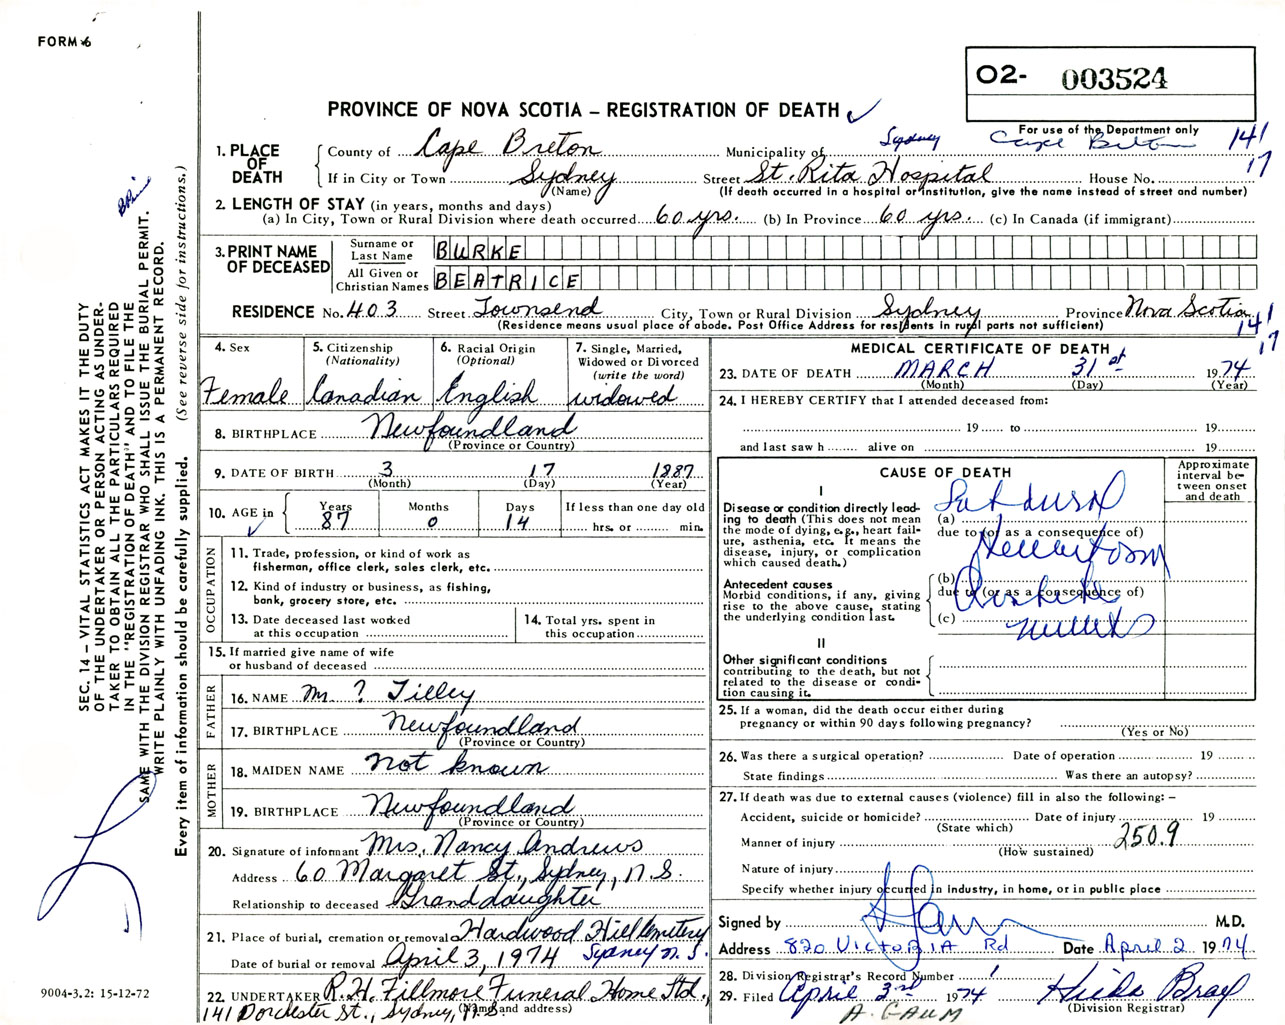 FORM 6
O2- 003524
PROVINCE OF NOVA SCOTIA – REGISTRATION OF DEATH ✓
For use of the Department only
Sydney Cape Breton 141
17
1. PLACE OF DEATH
County of Cape Breton Municipality of
If in City or Town Sydney Street St. Rita Hospital House No.
(Name) (If death occurred in a hospital or institution, give the name instead of street and number)
2. LENGTH OF STAY (in years, months and days)
(a) In City, Town or Rural Division where death occurred 60 yrs. (b) In Province 60 yrs. (c) In Canada (if immigrant)
3. PRINT NAME OF DECEASED
Surname or Last Name BURKE
All Given or Christian Names BEATRICE
RESIDENCE No. 403 Street Townsend City, Town or Rural Division Sydney Province Nova Scotia
(Residence means usual place of abode. Post Office Address for residents in rural parts not sufficient)
141
17
4. Sex
Female
5. Citizenship (Nationality)
Canadian
6. Racial Origin (Optional)
English
7. Single, Married, Widowed or Divorced (write the word)
widowed
8. BIRTHPLACE Newfoundland
(Province or Country)
9. DATE OF BIRTH 3 17 1887
(Month) (Day) (Year)
10. AGE in ✓
Years Months Days If less than one day old
87 0 14 hrs. or min.
OCCUPATION
11. Trade, profession, or kind of work as
fisherman, office clerk, sales clerk, etc.
12. Kind of industry or business, as fishing,
bank, grocery store, etc.
13. Date deceased last worked
at this occupation
14. Total yrs. spent in
this occupation
15. If married give name of wife
or husband of deceased
FATHER
16. NAME Mr. ? Tilley
17. BIRTHPLACE Newfoundland
(Province or Country)
MOTHER
18. MAIDEN NAME Not known
19. BIRTHPLACE Newfoundland
(Province or Country)
20. Signature of informant Mrs. Nancy Andrews
Address 60 Margaret St., Sydney, N.S.
Relationship to deceased Granddaughter
21. Place of burial, cremation or removal Hardwood Hill Cemetery
Sydney N.S.
Date of burial or removal April 3, 1974
22. UNDERTAKER R.H. Fillmore Funeral Home Ltd.,
(Name and address)
141 Dorchester St., Sydney, N.S.
MEDICAL CERTIFICATE OF DEATH
23. DATE OF DEATH MARCH 31st 1974
(Month) (Day) (Year)
24. I HEREBY CERTIFY that I attended deceased from:
19 to 19
and last saw h alive on 19
CAUSE OF DEATH
Approximate interval between onset and death
I
Disease or condition directly lead-
ing to death (This does not mean
the mode of dying, e.g., heart fail-
ure, asthenia, etc. It means the
disease, injury, or complication
which caused death.)
(a)
due to (or as a consequence of)
Antecedent causes
Morbid conditions, if any, giving
rise to the above cause, stating
the underlying condition last.
(b)
due to (or as a consequence of)
(c)
II
Other significant conditions
contributing to the death, but not
related to the disease or condi-
tion causing it.
25. If a woman, did the death occur either during
pregnancy or within 90 days following pregnancy?
(Yes or No)
26. Was there a surgical operation? Date of operation 19
State findings Was there an autopsy?
27. If death was due to external causes (violence) fill in also the following: –
Accident, suicide or homicide? Date of injury 19
(State which)
Manner of injury 250.9
(How sustained)
Nature of injury
Specify whether injury occurred in industry, in home, or in public place
Signed by M.D.
Address 820 VICTORIA Rd Date April 2 1974
28. Division Registrar's Record Number 1
29. Filed April 3rd 1974 Hilda Bray
(Division Registrar)
A. GAUM
SEC. 14 – VITAL STATISTICS ACT MAKES IT THE DUTY
OF THE UNDERTAKER OR PERSON ACTING AS UNDER-
TAKER TO OBTAIN ALL THE PARTICULARS REQUIRED
IN THE "REGISTRATION OF DEATH" AND TO FILE THE
SAME WITH THE DIVISION REGISTRAR WHO SHALL ISSUE THE BURIAL PERMIT.
WRITE PLAINLY WITH UNFADING INK. THIS IS A PERMANENT RECORD.
Every item of information should be carefully supplied. (See reverse side for instructions.)
9004-3.2: 15-12-72